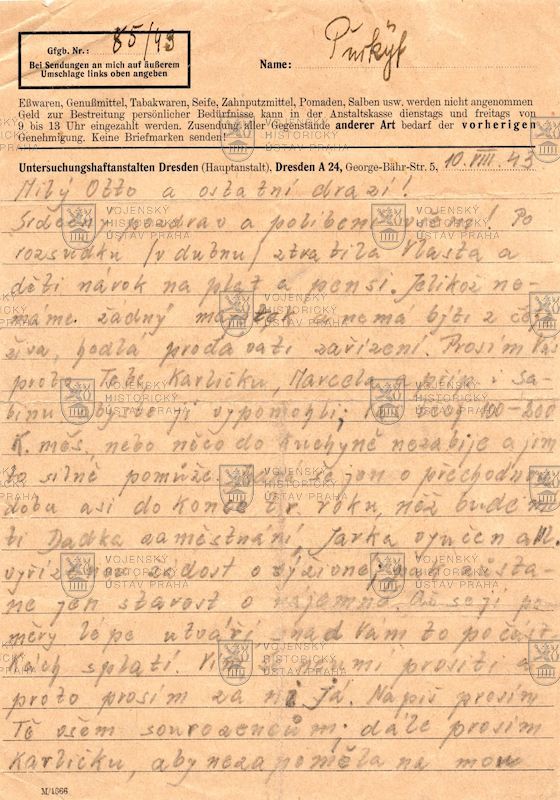 Gfgb. Nr.: 85/43
Bei Sendungen an mich auf äußerem
Umschlage links oben angeben
Name: Purkýt
Eßwaren, Genußmittel, Tabakwaren, Seife, Zahnputzmittel, Pomaden, Salben usw. werden nicht angenommen
Geld zur Bestreitung persönlicher Bedürfnisse kann in der Anstaltskasse dienstags und freitags von
9 bis 13 Uhr eingezahlt werden. Zusendung aller Gegenstände anderer Art bedarf der vorherigen
Genehmigung. Keine Briefmarken senden!
Untersuchungshaftanstalten Dresden (Hauptanstalt), Dresden A 24, George-Bähr-Str. 5, 10. VIII. 43
Milý Otto a ostatní drazí!
Srdečný pozdrav a políbení všem! Po
rozsudku /v dubnu/ ztratila Vlasta a
děti nárok na plat a pensi. Jelikož ne-
máme žádný a nemá býti z če
živa, hodlá prodavati zařízení. Prosím Vás
proto Tebe, Karličku, Marcela a příp. i Sa-
binu ji vypomohli; 100-200
K měs., nebo něco do kuchyně nezabije a jim
to silně pomůže. jen o přechodnou
dobu asi do konce t. r. roku, než budem
ti Dadka zaměstnání, Jarka vyučen a
žádost o zůsta-
ne jen starost o nájemné. Až se jí po-
měry lépe utváří snad Vám to po část-
kách splatí. prositi a
proto prosím za ni já. Napiš prosím
Tě všem sourozencům; dále prosím
Karličku, aby nezapoměla na mou
M/1366
VOJENSKÝ
HISTORICKÝ
ÚSTAV PRAHA